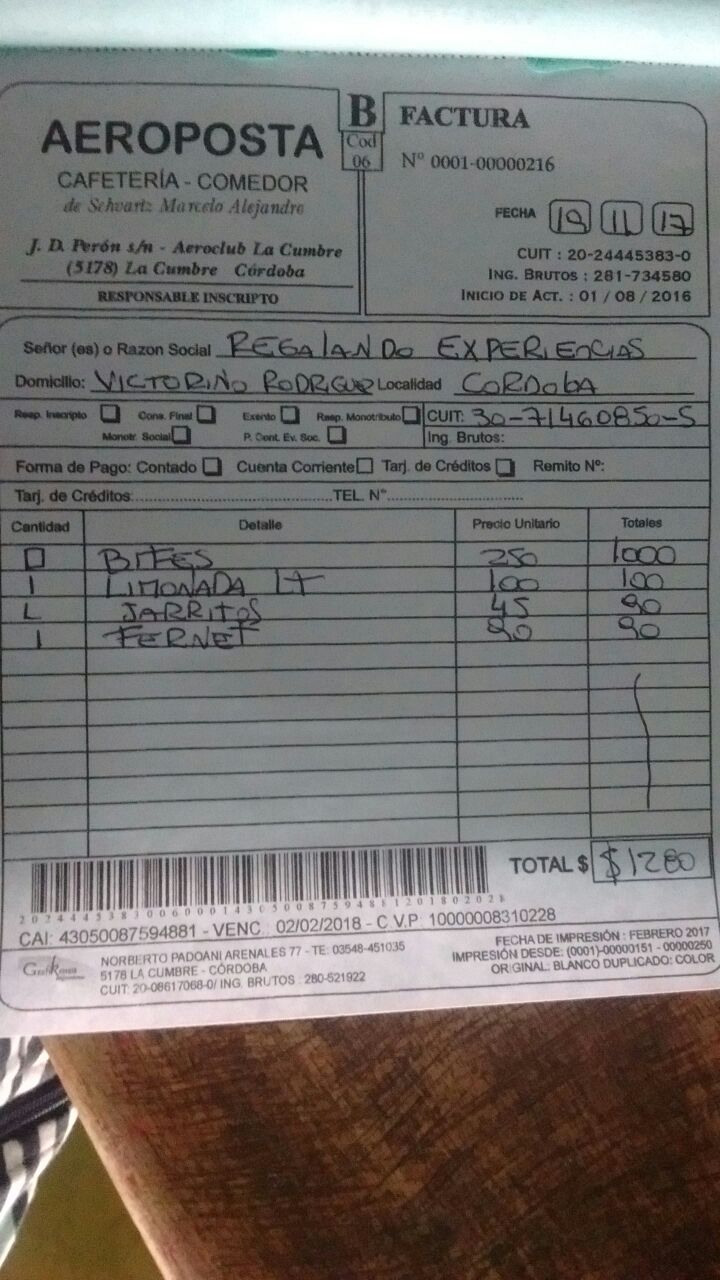 AEROPOSTA
CAFETERÍA - COMEDOR
de Schvartz Marcelo Alejandro
J. D. Perón s/n - Aeroclub La Cumbre
(5178) La Cumbre Córdoba
RESPONSABLE INSCRIPTO
B
Cod
06
FACTURA
N° 0001-00000216
FECHA 19 11 17
CUIT : 20-24445383-0
ING. BRUTOS : 281-734580
INICIO DE ACT. : 01 / 08 / 2016
Señor (es) o Razon Social REGALANDO EXPERIENCIAS
Domicilio: VICTORINO RODRIGUEZ Localidad CORDOBA
Resp. Inscripto Cons. Final Exento Resp. Monotributo CUIT: 30-71460850-5
Monotr. Social P. Cont. Ev. Soc. Ing. Brutos:
Forma de Pago: Contado Cuenta Corriente Tarj. de Créditos Remito Nº:
Tarj. de Créditos: TEL. N°
Cantidad Detalle Precio Unitario Totales
BIFES 250 1000
1 LIMONADA LT 100 100
2 JARRITOS 45 90
1 FERNET 90 90
TOTAL $ $1280
CAI: 43050087594881 - VENC.: 02/02/2018 - C V.P: 10000008310228
NORBERTO PADOANI ARENALES 77 - TE: 03548-451035
5178 LA CUMBRE - CÓRDOBA
CUIT: 20-08617068-0/ ING. BRUTOS : 280-521922
FECHA DE IMPRESIÓN : FEBRERO 2017
IMPRESIÓN DESDE: (0001)-00000151 - 00000250
ORIGINAL: BLANCO DUPLICADO: COLOR